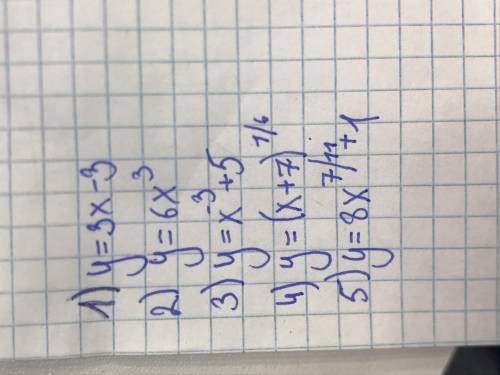 1) y=3x-3
2) y=6x³
3) y=x⁻³+5
4) y=(x+7)^1/6
5) y=8x^7/11+1